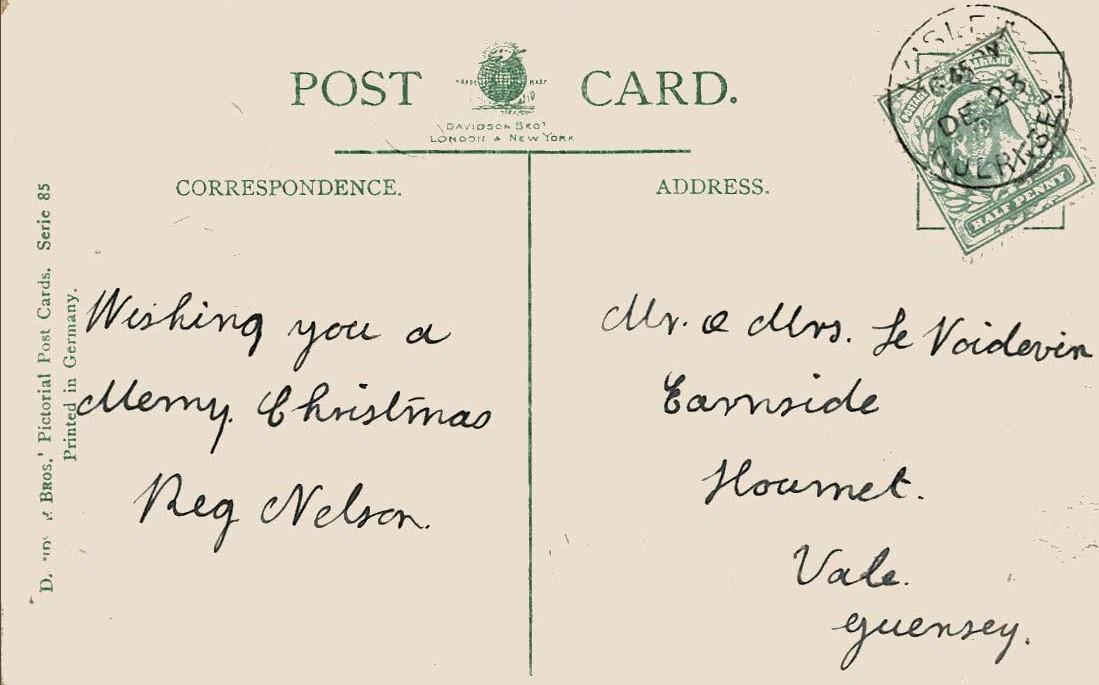 POST CARD.
TRADE MARK
DAVIDSON BROS
LONDON & NEW YORK
CORRESPONDENCE.
ADDRESS.
DE 23
GUERNSEY
HALF PENNY
Bros.' Pictorial Post Cards. Serie 85
Printed in Germany.
Wishing you a
Merry Christmas
Reg Nelson.
Mr. & Mrs. Le Poidevin
Earnside
Houmet.
Vale.
Guensey.